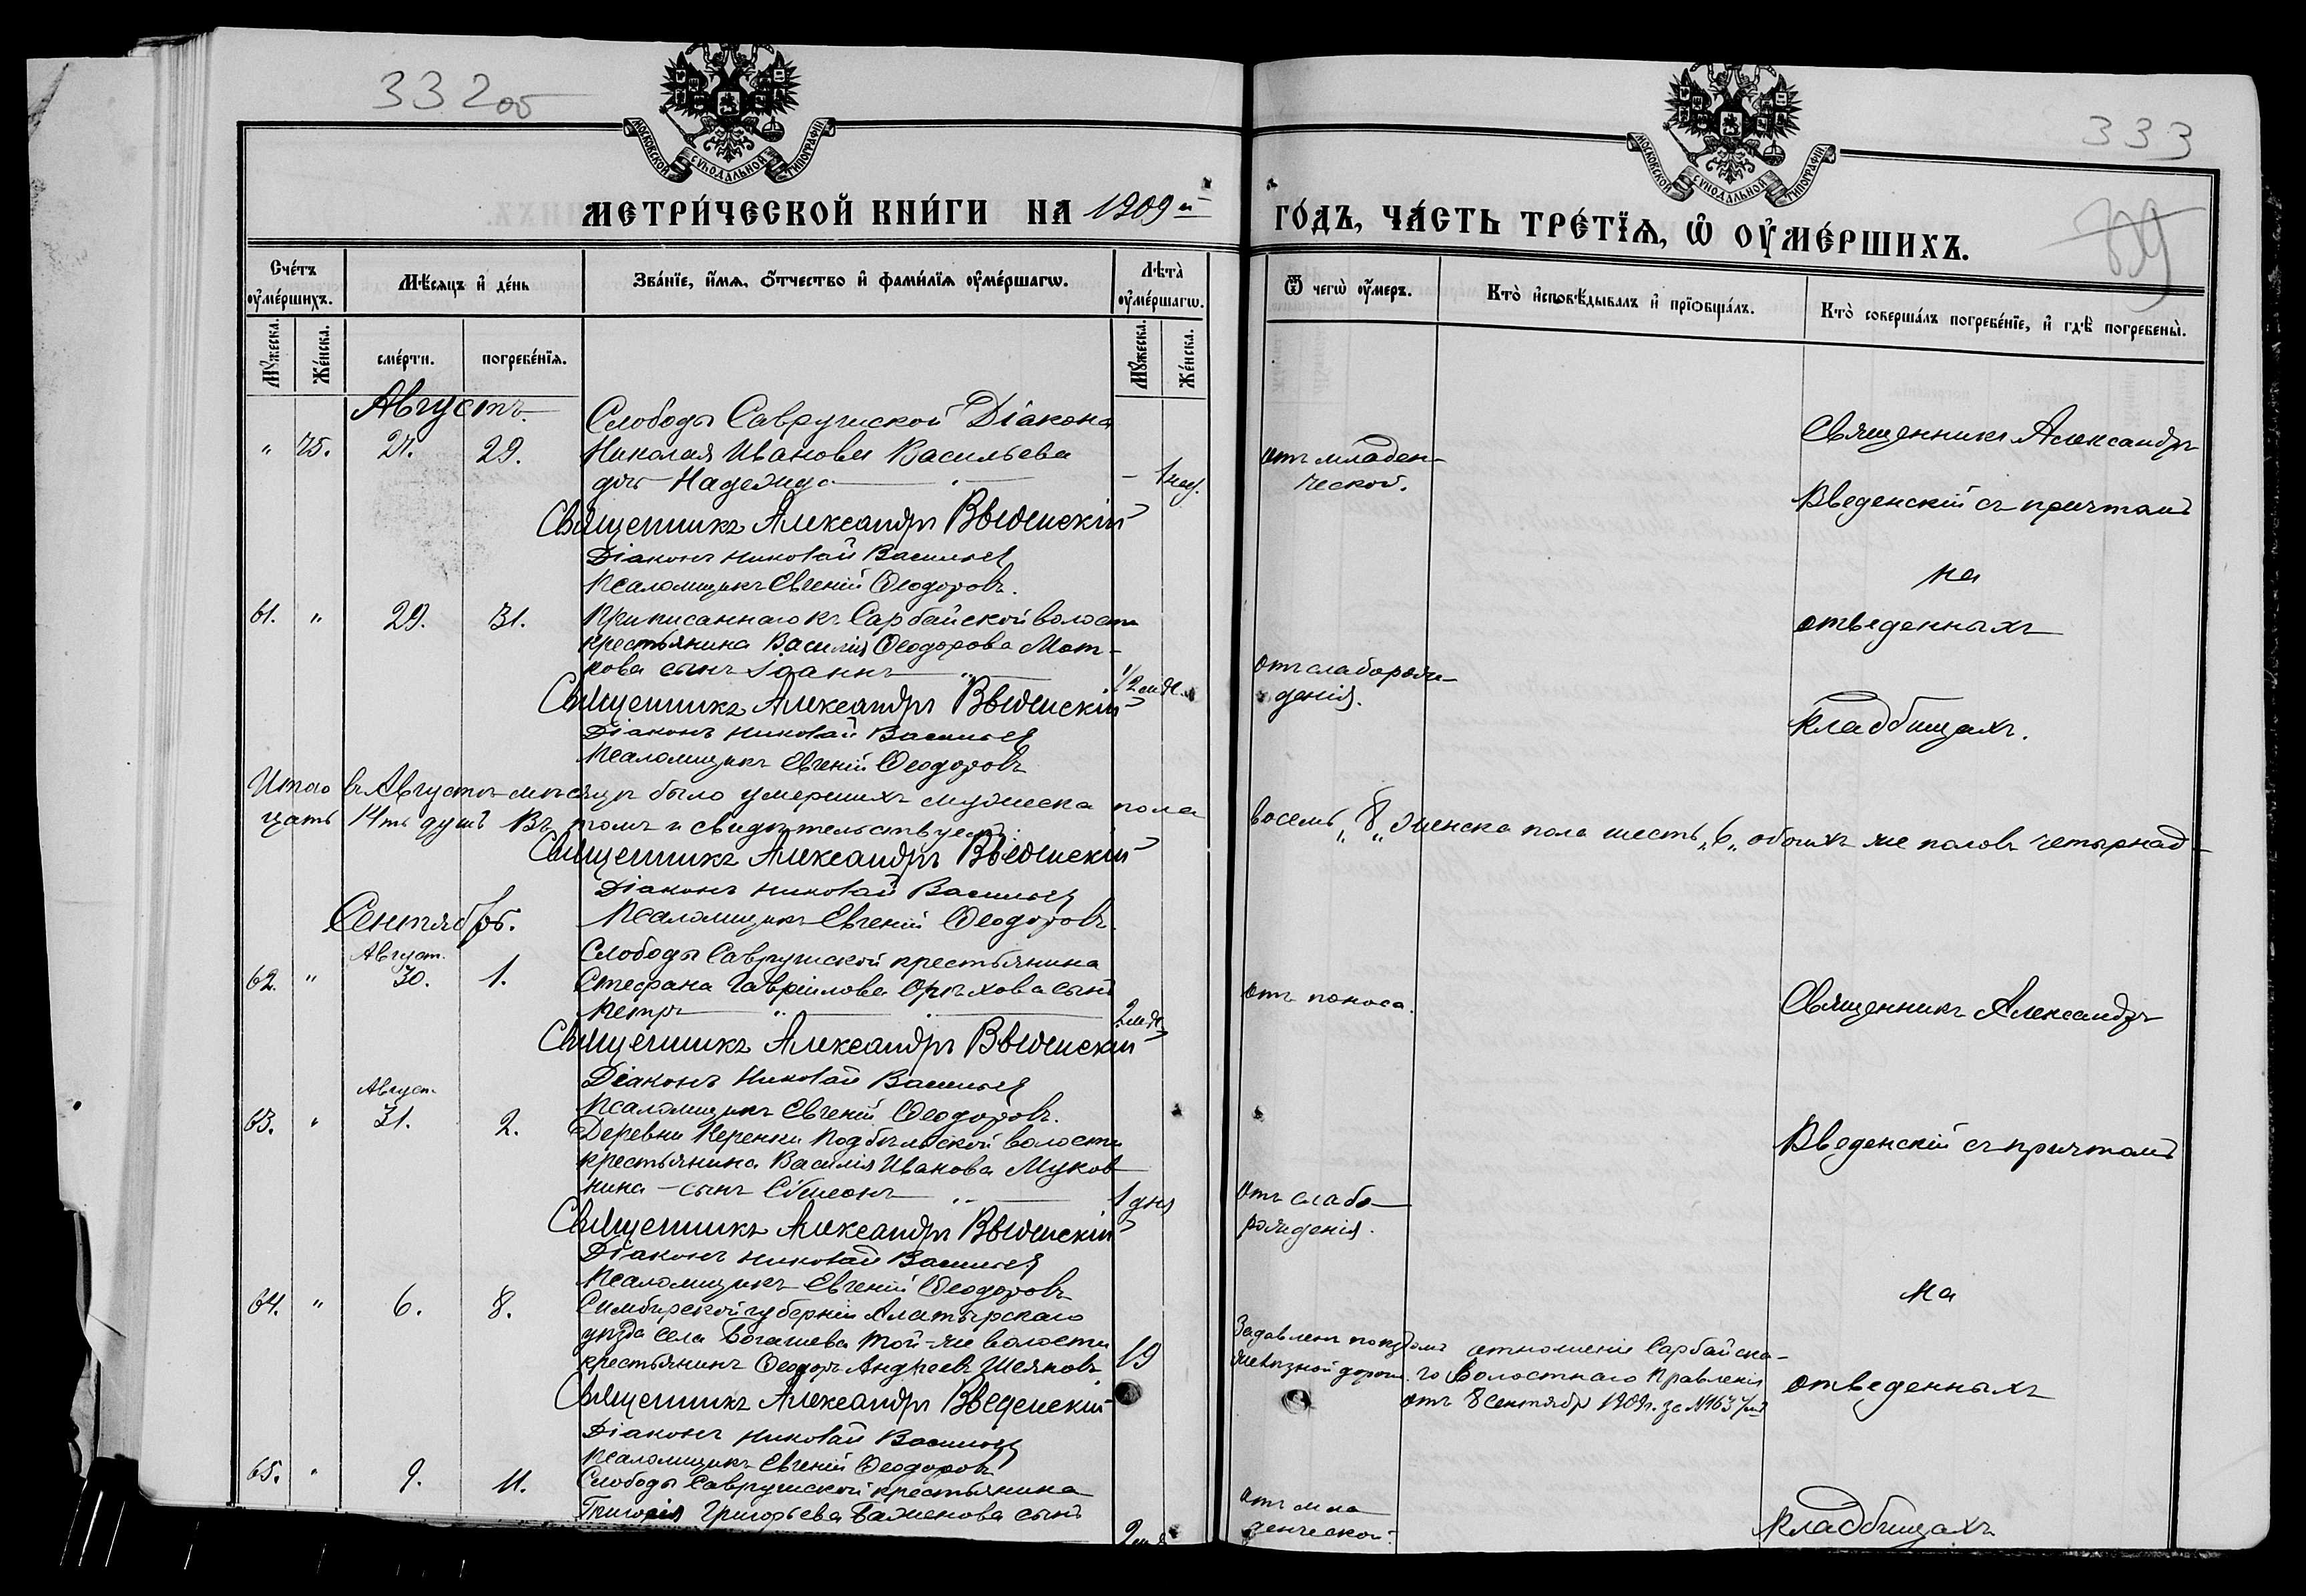 332об
333
МОСКОВСКОЙ СѴНОДАЛЬНОЙ ТИПОГРАФІИ
МОСКОВСКОЙ СѴНОДАЛЬНОЙ ТИПОГРАФІИ
МЕТРИ́ЧЕСКОЙ КНИ́ГИ НА 1909й
ГО́ДЪ, ЧА́СТЬ ТРЕ́ТЇѦ, Ѡ҆ ОУ҆МЕ́РШИХЪ.
Сче́тъ оу҆ме́ршихъ.
Мꙋ́жеска.
Же́нска.
Мѣ́сяцъ и҆ де́нь
сме́рти.
погребе́нїѧ.
Зва́нїе, и҆́мѧ, ѻ҆́тчество и҆ фами́лїѧ оу҆ме́ршагѡ.
Лѣта̀ оу҆ме́ршагѡ.
Мꙋ́жеска.
Же́нска.
Ѿ чегѡ̀ оу҆́меръ.
Кто̀ и҆сповѣ́дывалъ и҆ прїѻбща́лъ.
Кто̀ соверша́лъ погребе́нїе, и҆ гдѣ̀ погребены̀.
Августъ.
" 75. 27. 29.
Слободы Саврушской Діакона
Николая Иванова Васильева
дочь Надежда
1 нед.
отъ младен-
ческой.
Священникъ Александръ
Введенскій съ причтомъ
на
отведенныхъ
кладбищахъ.
Священникъ Александръ Введенскій
Діаконъ Николай Васильев
Псаломщикъ Евгеній Ѳеодоровъ.
61. " 29. 31.
Приписаннаго къ Сарбайской волости
крестьянина Василія Ѳеодорова Мот-
кова сынъ Іоаннъ
отъ слаборож-
денія.
Священникъ Александръ Введенскій
Діаконъ Николай Васильев
Псаломщикъ Евгеній Ѳеодоровъ
Итого въ Августѣ мѣсяцѣ было умершихъ мужеска пола восемь "8" женска пола шесть "6" обоихъ же половъ четырнад-
цать 14ть душъ Въ томъ и свидѣтельствуемъ:
Священникъ Александръ Введенскій
Діаконъ Николай Васильев
Псаломщикъ Евгеній Ѳеодоровъ.
Сентябрь.
Август.
62. " 30. 1.
Слободы Саврушской крестьянина
Стефана Гавріилова Орѣхова сынъ
Петръ
отъ поноса.
Священникъ Александръ
Введенскій съ причтомъ
на
отведенныхъ
кладбищахъ
Священникъ Александръ Введенскій
Діаконъ Николай Васильев
Псаломщикъ Евгеній Ѳеодоровъ.
Август.
63. " 31. 2.
Деревни Керенки Подбѣльской волости
крестьянина Василія Иванова Муков
нина - сынъ Сѵмеонъ
1 дня
отъ слабо-
рожденія.
Священникъ Александръ Введенскій
Діаконъ Николай Васильев
Псаломщикъ Евгеній Ѳеодоровъ
64. " 6. 8.
Симбирской губерніи Алатырскаго
уѣзда села Богашева той-же волости
крестьянинъ Ѳеодоръ Андреевъ
19
Задавленъ поѣздомъ
желѣзной дороги.
отношеніе Сарбайска-
го Волостнаго Правленія
отъ 8 Сентября 1909г. за №1637мъ
Священникъ Александръ Введенскій
Діаконъ Николай Васильев
Псаломщикъ Евгеній Ѳеодоровъ
65. " 9. 11.
Слободы Саврушской крестьянина
Григорія Григорьева Баженова сынъ
отъ мла
денческой.